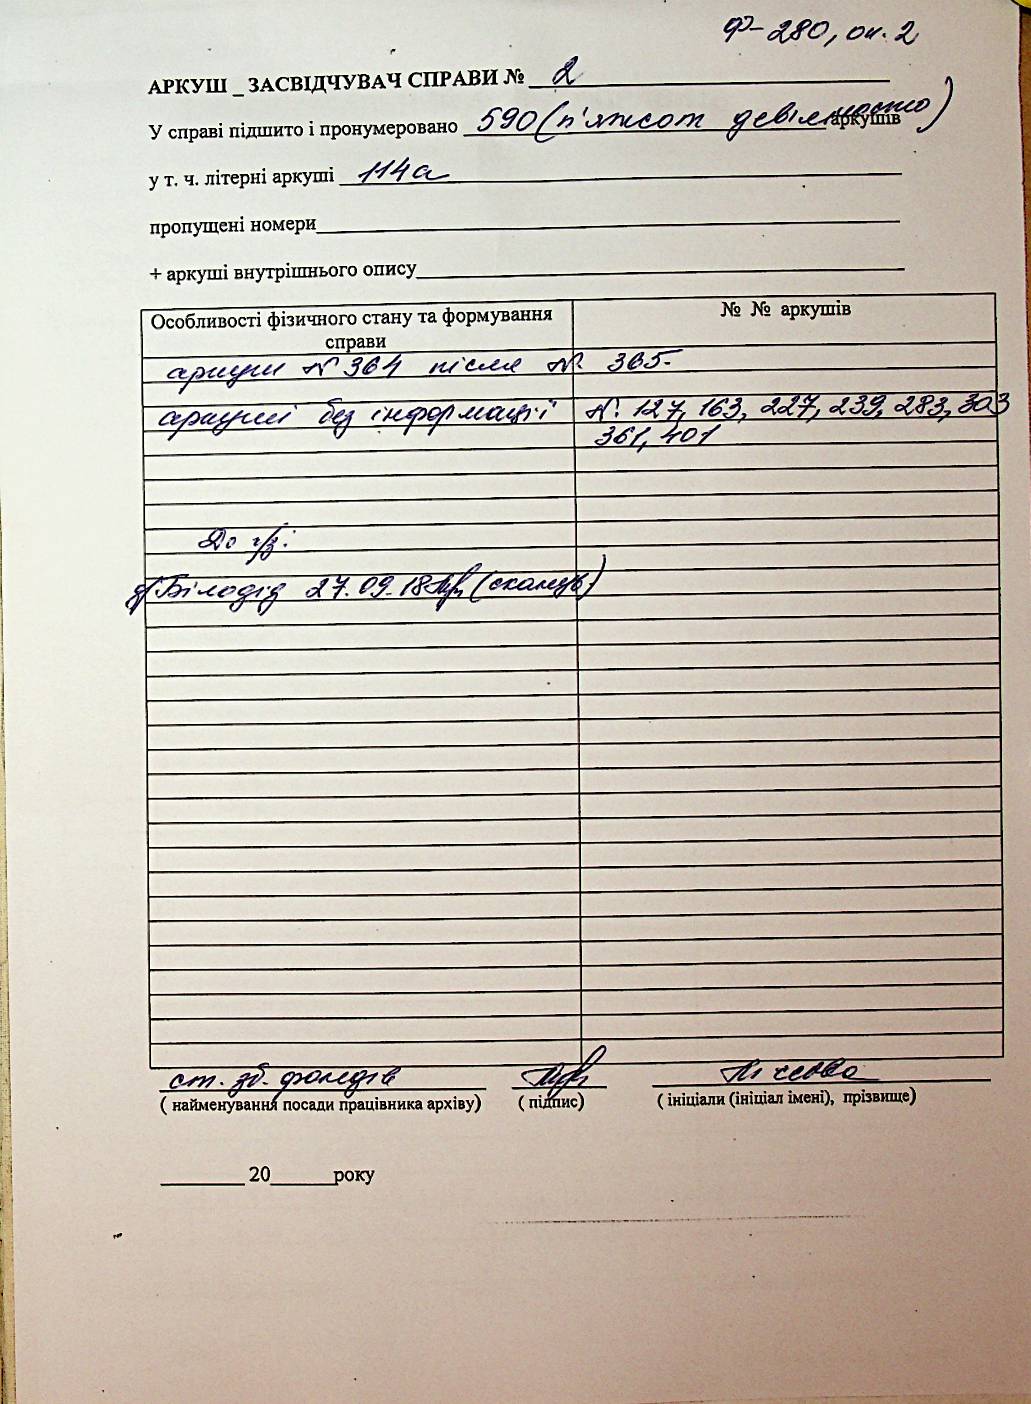 Ф-280, оп. 2
АРКУШ _ ЗАСВІДЧУВАЧ СПРАВИ № 2
У справі підшито і пронумеровано 590 (п'ятсот дев'яносто) аркушів
у т. ч. літерні аркуші 114а
пропущені номери
+ аркуші внутрішнього опису
Особливості фізичного стану та формування справи № № аркушів
аркуш № 364 після № 365.
аркуші без інформації №. 127, 163, 227, 239, 283, 303
361, 401
До ч/з:
Білодід 27.09.18 (сканув)
ст. зб. фондів
( найменування посади працівника архіву) ( підпис) ( ініціали (ініціал імені), прізвище)
20 року